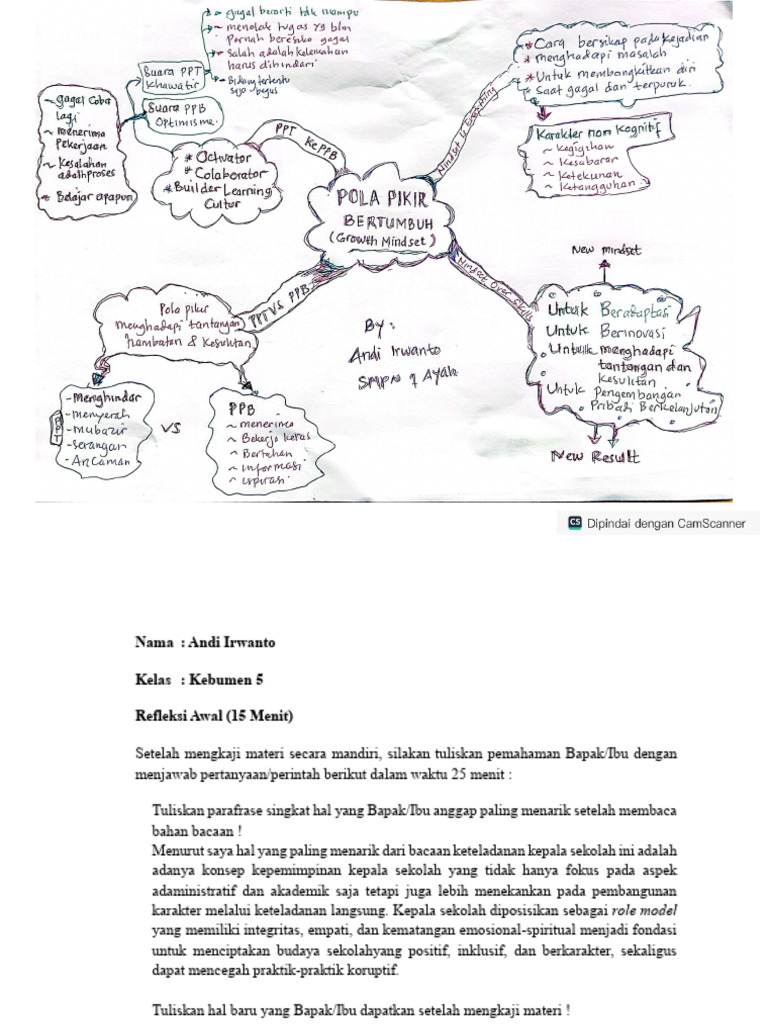 - gagal berarti tdk mampu
~ menolak tugas yg blm
Pernah beresiko gagal
~ Salah adalah kelemahan
harus dihindari
~ Bidang tertentu
saja bagus
Suara PPT
Khawatir
Suara PPB
Optimisme.
~ gagal Coba
lagi
~ menerima
Pekerjaan
~ Kesalahan
adalah proses
* Belajar apapun
* Activator
* Colaborator
* Builder Learning
Cultur
PPT KE PPB
POLA PIKIR
BERTUMBUH
(Growth Mindset)
Mindset is Everything
* Cara bersikap pada Kejadian
* menghadapi masalah
* Untuk membangkitkan diri
* Saat gagal dan terpuruk.
Karakter non Kognitif
~ Kegigihan
~ Kesabaran
~ Ketekunan
~ Ketangguhan
Mindset Over Skills
New mindset
Untuk Beradaptasi
Untuk Berinovasi
Untuk menghadapi
tantangan dan
Kesulitan
Untuk Pengembangan
Pribadi Berkelanjutan
New Result
PPT VS PPB
Pola pikir
menghadapi tantangan
hambatan & Kesulitan
PPT
- Menghindar
- menyerah
- mubazir
- serangan
- Ancaman
VS
PPB
~ menerima
~ Bekerja keras
~ Bertahan
~ informasi
~ ispirasi
By:
Andi Irwanto
SMPN 1 Ayah
CS Dipindai dengan CamScanner
Nama : Andi Irwanto
Kelas : Kebumen 5
Refleksi Awal (15 Menit)
Setelah mengkaji materi secara mandiri, silakan tuliskan pemahaman Bapak/Ibu dengan
menjawab pertanyaan/perintah berikut dalam waktu 25 menit :
Tuliskan parafrase singkat hal yang Bapak/Ibu anggap paling menarik setelah membaca
bahan bacaan !
Menurut saya hal yang paling menarik dari bacaan keteladanan kepala sekolah ini adalah
adanya konsep kepemimpinan kepala sekolah yang tidak hanya fokus pada aspek
adaministratif dan akademik saja tetapi juga lebih menekankan pada pembangunan
karakter melalui keteladanan langsung. Kepala sekolah diposisikan sebagai role model
yang memiliki integritas, empati, dan kematangan emosional-spiritual menjadi fondasi
untuk menciptakan budaya sekolahyang positif, inklusif, dan berkarakter, sekaligus
dapat mencegah praktik-praktik koruptif.
Tuliskan hal baru yang Bapak/Ibu dapatkan setelah mengkaji materi !